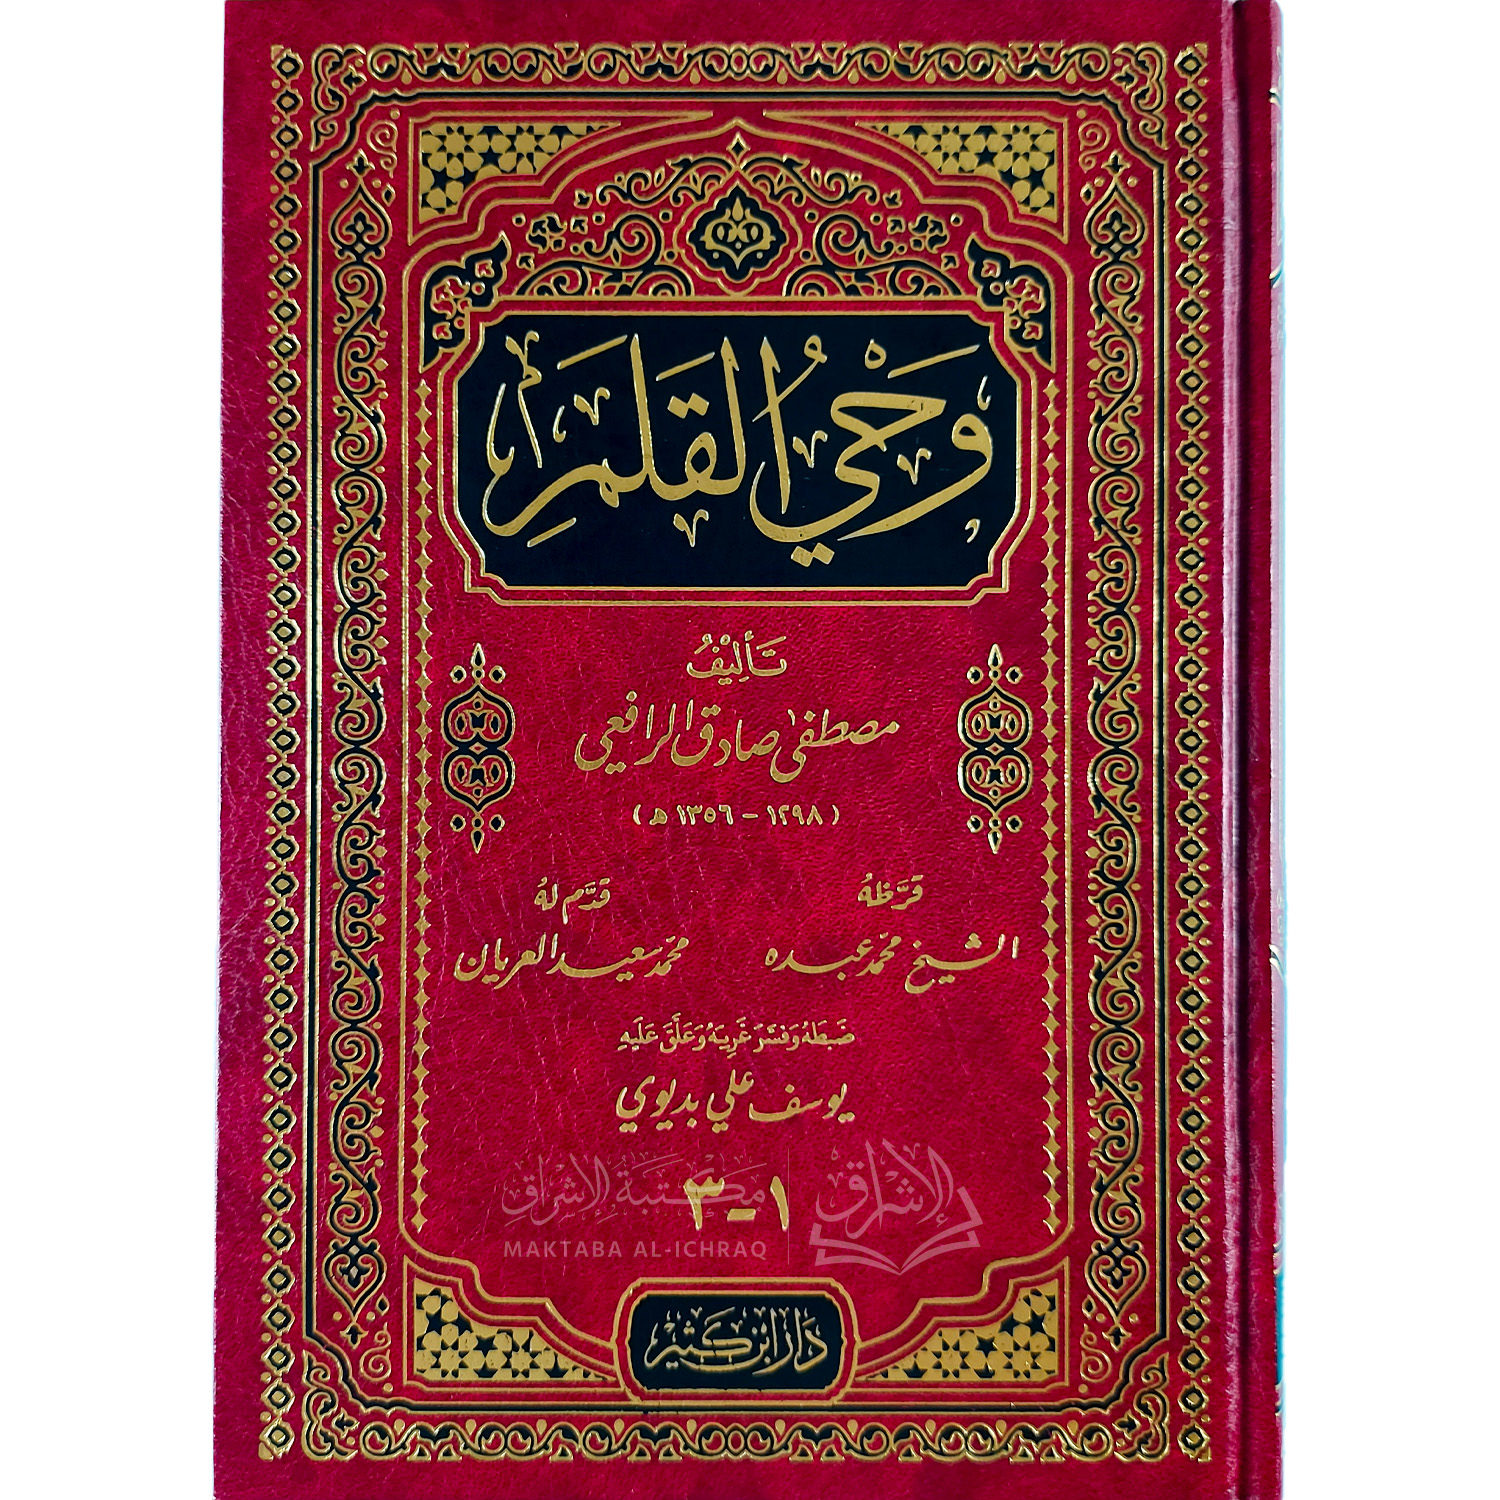 وَحْيُ القَلَمِ
تَأليْفُ
مصطفى صادق الرافعي
(١٢٩٨ - ١٣٥٦ هـ)
قرَّظهُ
قدَّم لهُ
الشيخ محمّد عبده
محمّد سعيد العريان
ضَبَطَهُ وَفسَّرَ غَرِيبَهُ وَعَلَّقَ عَلَيهِ
يوسف علي بديوي
١-٣
الإشراق
مكتبة الإشراق
MAKTABA AL-ICHRAQ
دَار ابْن كَثير